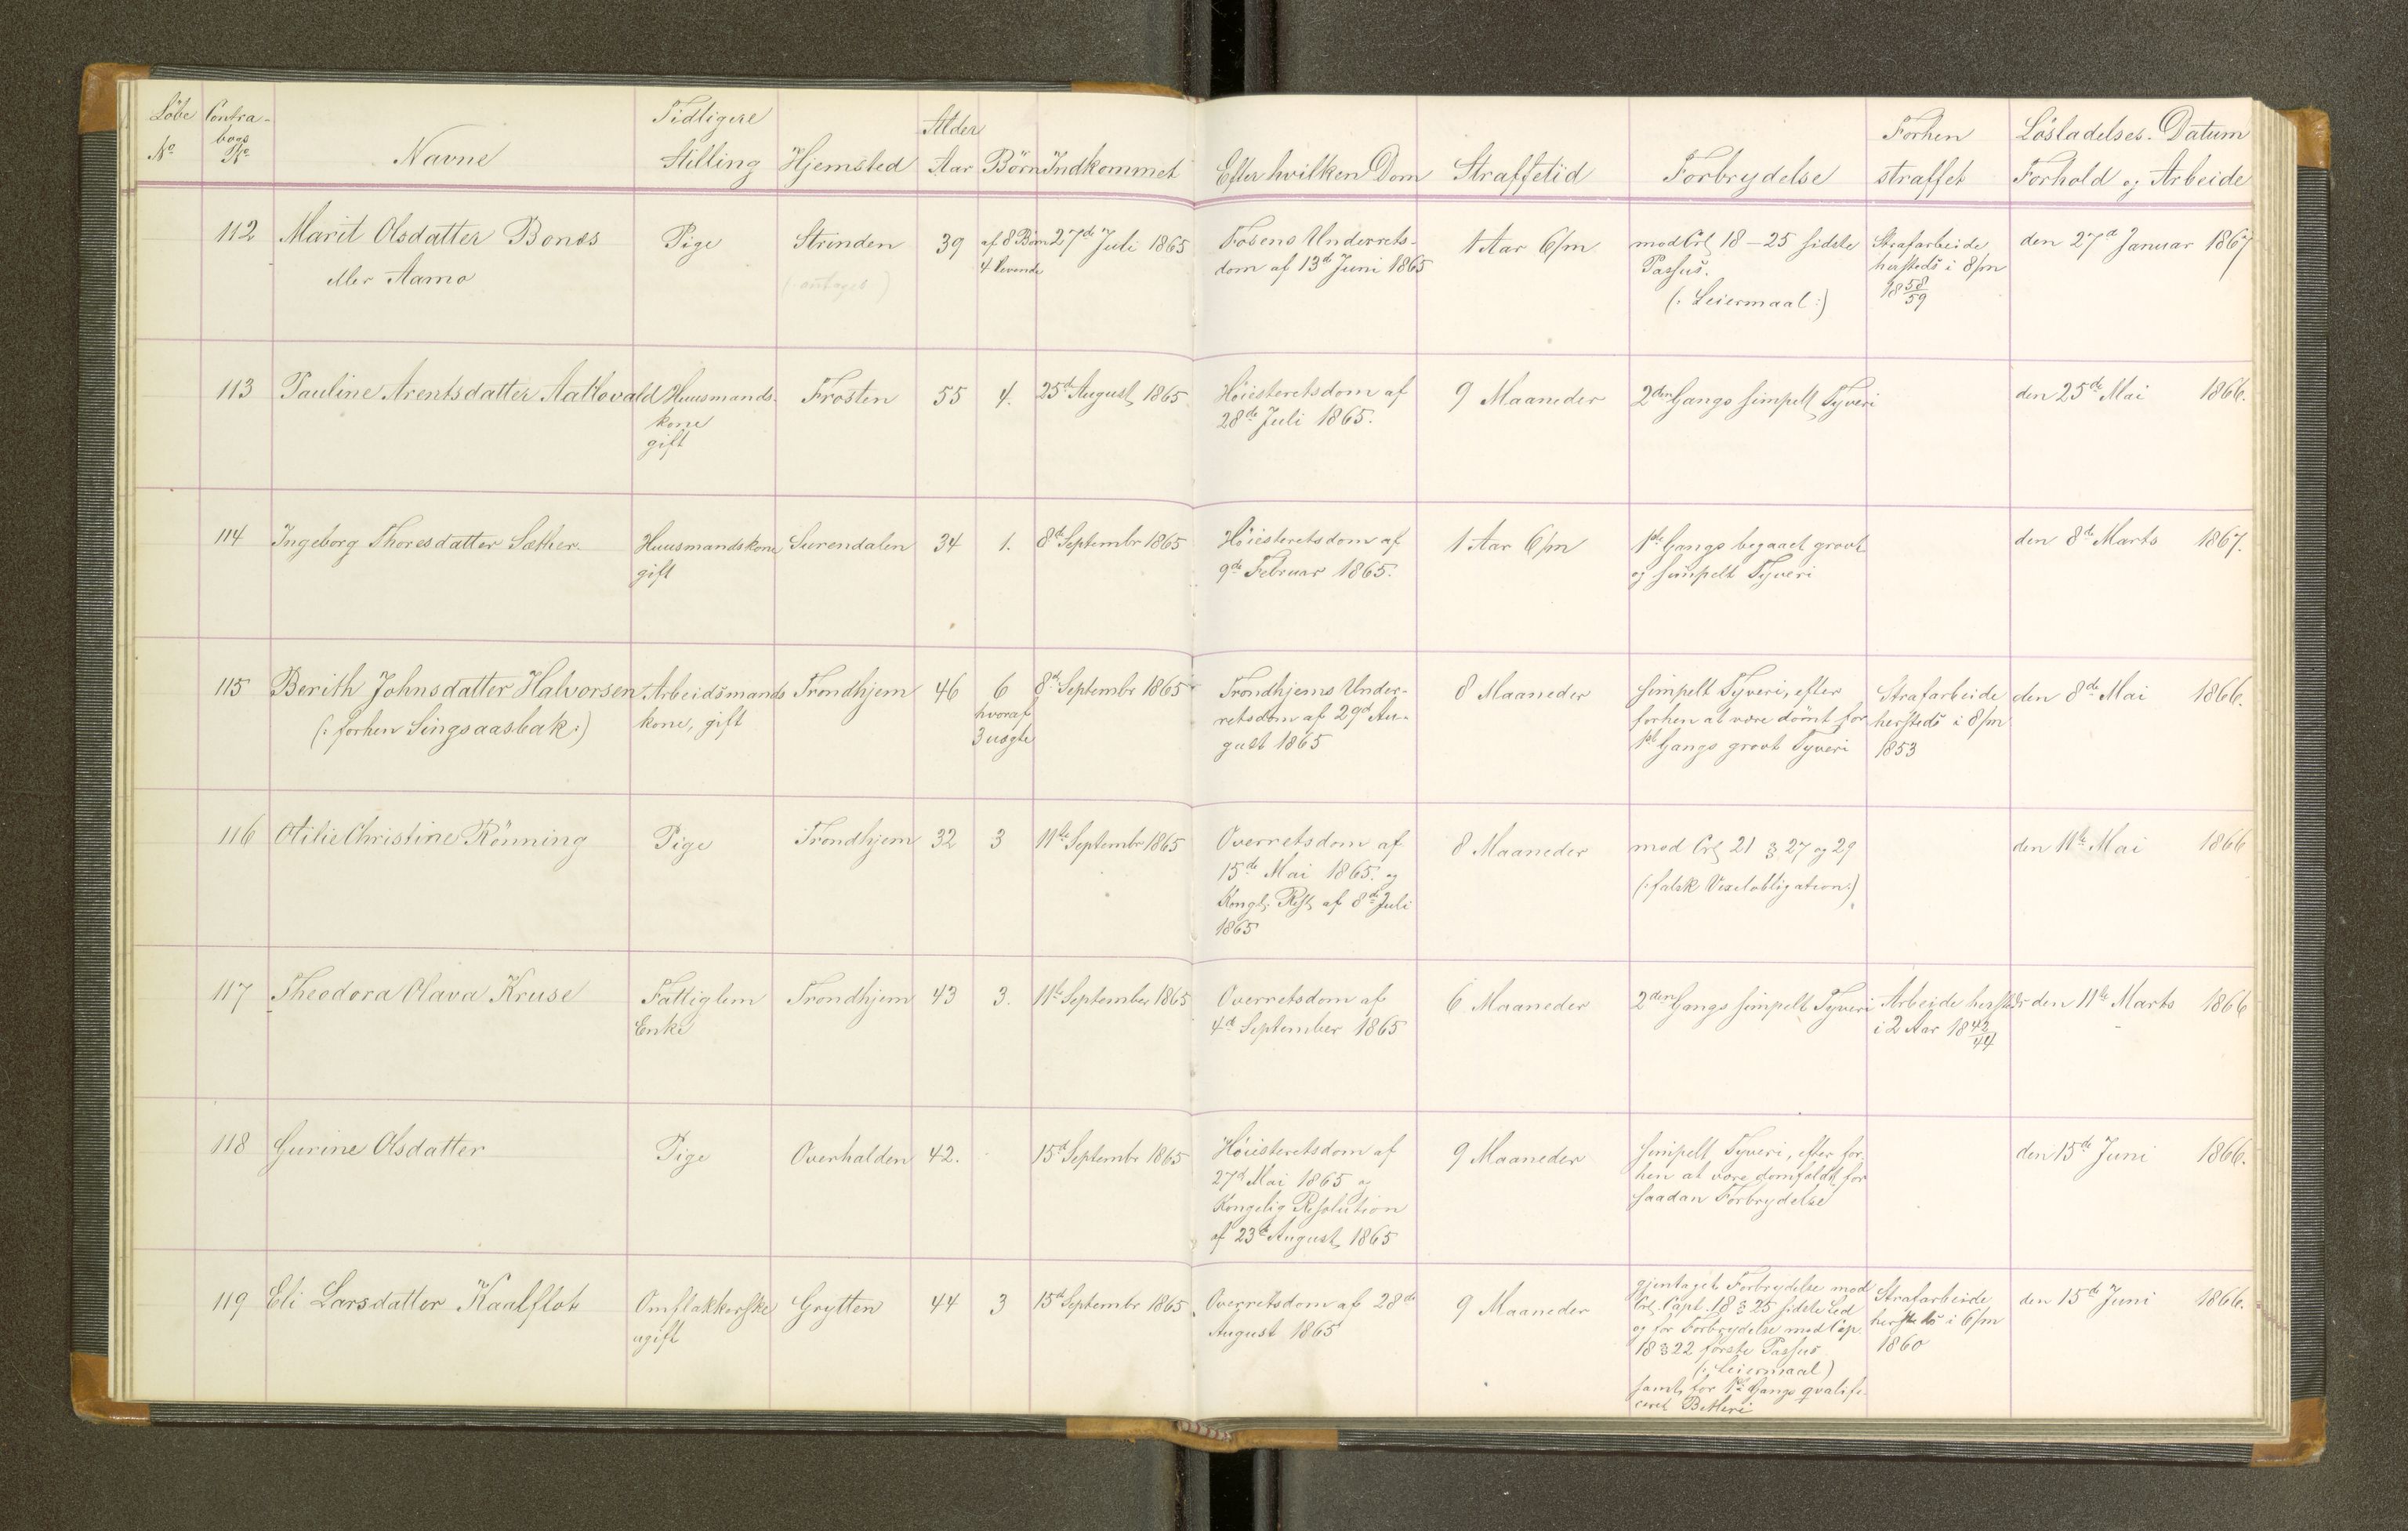 Løbe No
Contra-
bogs
No
Navne
Tidligere
Stilling
Hjemsted
Alder
Aar
Börn
Indkommet
Efter hvilken Dom
Straffetid
Forbrydelse
Forhen
straffet
Lösladelses-Datum
Forhold og Arbeide
112
Marit Olsdatter Bones
eller Aamo
Pige
Strinden
(: antaget )
39
af 8 Börn
4 levende
27d Juli 1865
Fosens Underrets-
dom af 13d Juni 1865
1 Aar 6/m
mod Crl 18-25 sidste
Passus.
(: Leiermaal :)
Strafarbeide
hersteds i 8/m
18 58/59
den 27d Januar 1867
113
Pauline Arentsdatter Aatlovald
Huusmands-
kone
gift
Frosten
55
4.
25d August 1865
Høiesteretsdom af
28de Juli 1865.
9 Maaneder
2den Gangs simpelt Tyveri
den 25de Mai 1866.
114
Ingeborg Thoresdatter Sæther.
Huusmandskone
gift
Surendalen
34
1.
8d Septembr 1865
Høiesteretsdom af
9de Februar 1865.
1 Aar 6/m
1ste Gangs begaaet grovt
og simpelt Tyveri
den 8de Marts 1867.
115
Berith Johnsdatter Halvorsen
(: forhen Singsaasbak :)
Arbeidsmands
kone, gift
Trondhjem
46
6
hvoraf
3 uægte
8d Septembr 1865
Trondhjems Under-
retsdom af 29d Au-
gust 1865
8 Maaneder
simpelt Tyveri, efter
forhen at være dömt for
1st Gangs grovt Tyveri
Strafarbeide
hersteds i 8/m
1853
den 8de Mai 1866.
116
Otilie Christine Rönning
Pige
Trondhjem
32
3
11te Septembr 1865
Overretsdom af
15de Mai 1865. og
Kongl. Rest af 8de Juli
1865
8 Maaneder
mod Crl 21 § 27 og 29
(: falsk Vexelobligation :)
den 11te Mai 1866
117
Theodora Olava Kruse
Fattiglem
Enke
Trondhjem
43
3.
11te September 1865
Overretsdom af
4d September 1865
6 Maaneder
2den Gangs simpelt Tyveri
Arbeide hersteds
i 2 Aar 18 42/44
den 11te Marts 1866
118
Gurine Olsdatter
Pige
Overhalden
42.
15d Septembr 1865
Høiesteretsdom af
27d Mai 1865 og
Kongelig Resolution
af 23d August 1865
9 Maaneder
simpelt Tyveri, efter for-
hen at være domfældt for
saadan Forbrydelse
den 15de Juni 1866.
119
Eli Larsdatter Kaalflot
Omflakkerske
ugift
Grytten
44
3
15d Septembr 1865
Overretsdom af 28de
August 1865
9 Maaneder
gjentaget Forbrydelse mod
Crl. Capt. 18 § 25 sidste Led
og for Forbrydelse mod Cap.
18 § 22 første Passus
(: Leiermaal )
samt for 1ste Gangs qvalifi-
ceret Betleri
Strafarbeide
hersteds i 6/m
1860
den 15de Juni 1866.